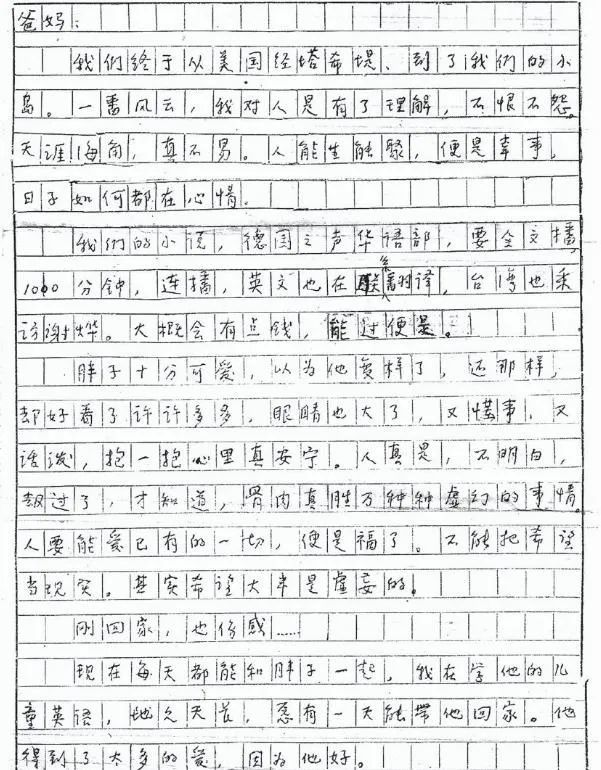 爸妈:
我们终于从美国经塔希堤、到了我们的小
岛。一番风云,我对人是有了理解,不恨不怨。
天涯海角,真不易。人能生能聚,便是幸事,
日子如何都在心情。
我们的小说,德国之声华语部,要全文播,
1000分钟,连播,英文也在联系翻译,台湾也来
访谢烨。大概会有点钱,能过便是。
胖子十分可爱,以为他变样了,还那样,
却好看了许许多多,眼睛也大了,又懂事,又
活泼,抱一抱心里真安宁。人真是,不明白,
都过了,才知道,骨肉真胜万种种虚幻的事情。
人要能爱已有的一切,便是福了。不能把希望
当现实。其实希望大半是虚妄的。
刚回家,也伤感……
现在每天都能和胖子一起,我在学他的儿
童英语,地久天长,总有一天能带他回家。他
得到了太多的爱,因为他好。